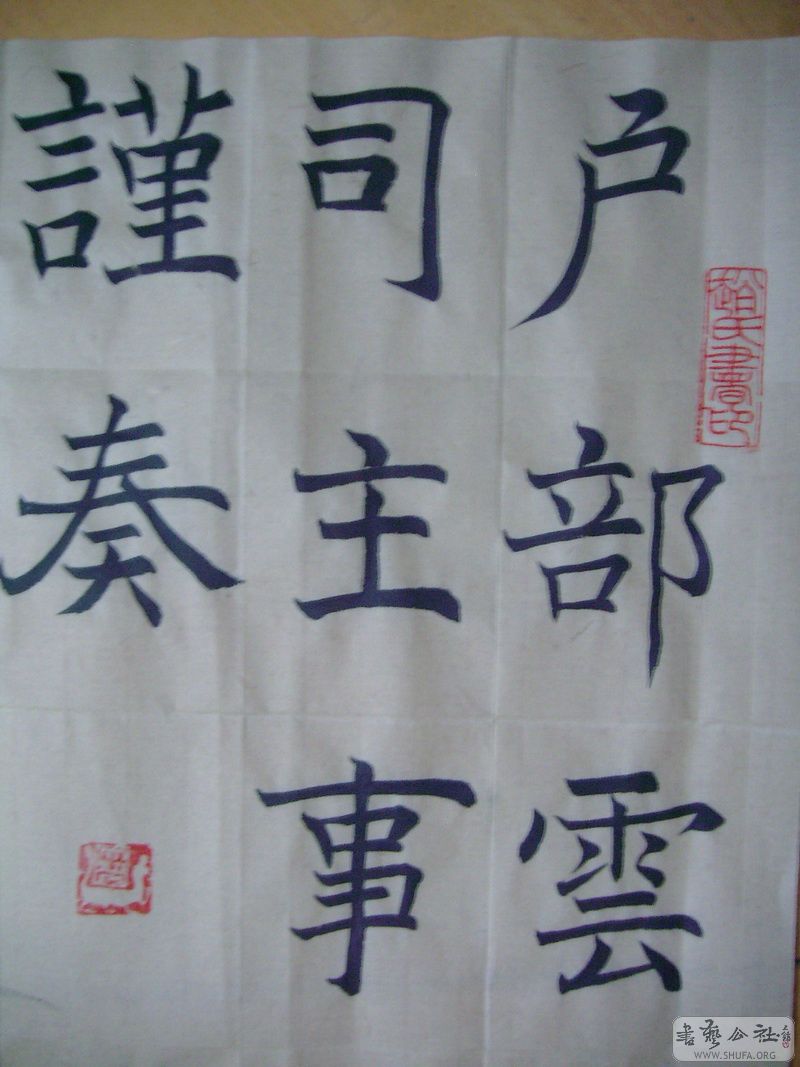 户部雲
司主事
謹奏
趙氏書印
書藝公社
WWW.SHUFA.ORG